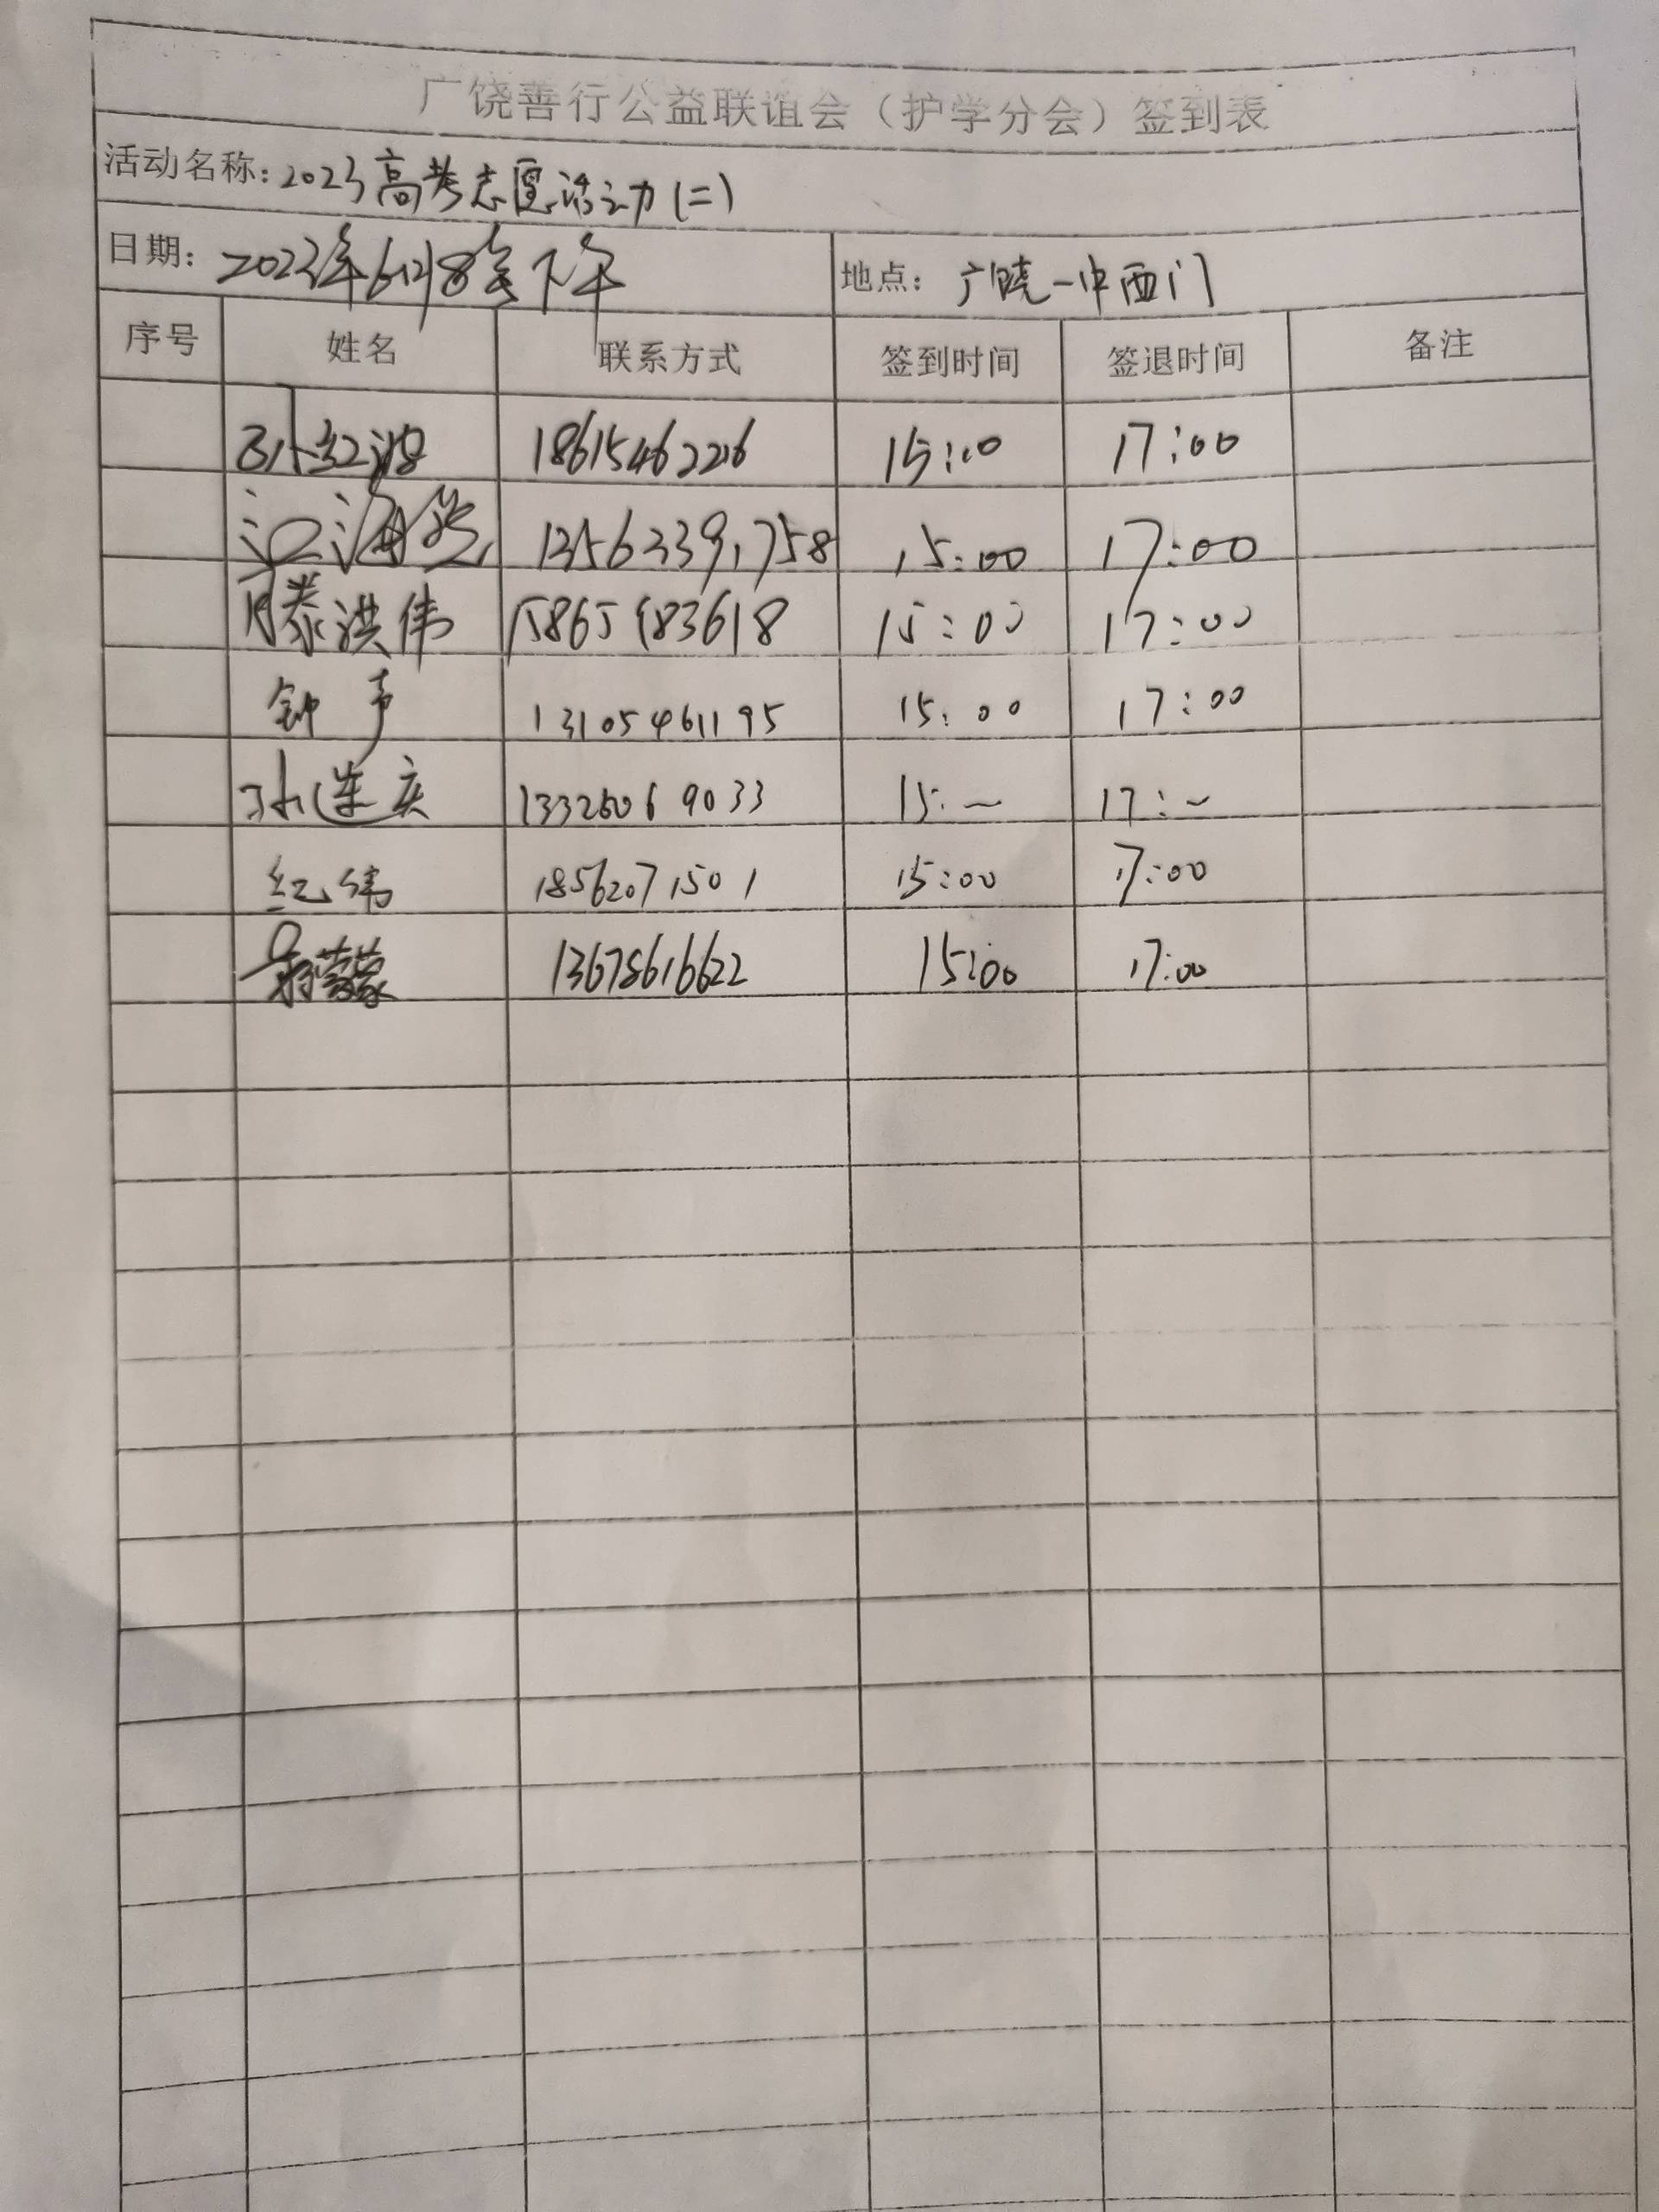 广饶善行公益联谊会（护学分会）签到表
活动名称: 2023高考志愿活动(二)
日期: 2023年6月8号下午 地点: 广饶一中西门
序号 姓名 联系方式 签到时间 签退时间 备注
孙红波 18615462226 15:00 17:00
江海 13563391758 15:00 17:00
滕洪伟 15865983618 15:00 17:00
钟声 13105461195 15:00 17:00
孙连庆 13326069033 15:— 17:~
纪伟 18562071501 15:00 17:00
蒙蒙 13678616622 15:00 17:00